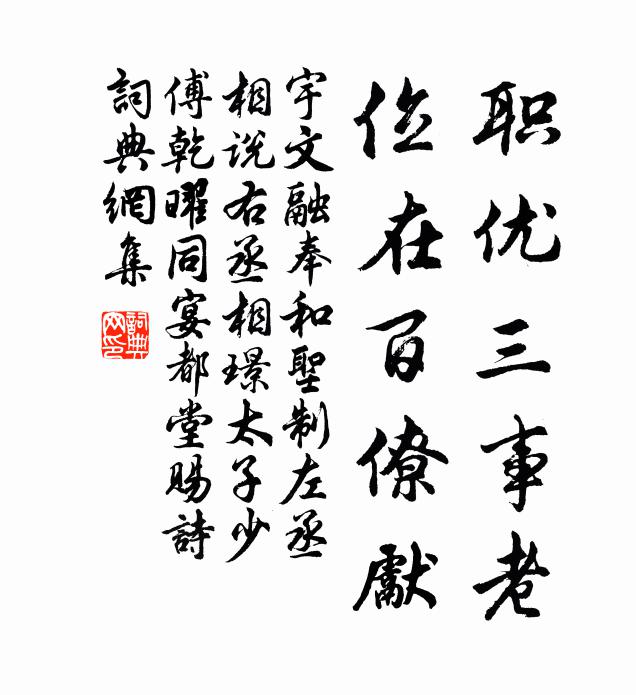 职优三事老
位在百僚獻
宇文融奉和聖制左丞
相说右丞相璟太子少
傅乾曜同宴都堂賜詩
詞典網集
詞典
网印